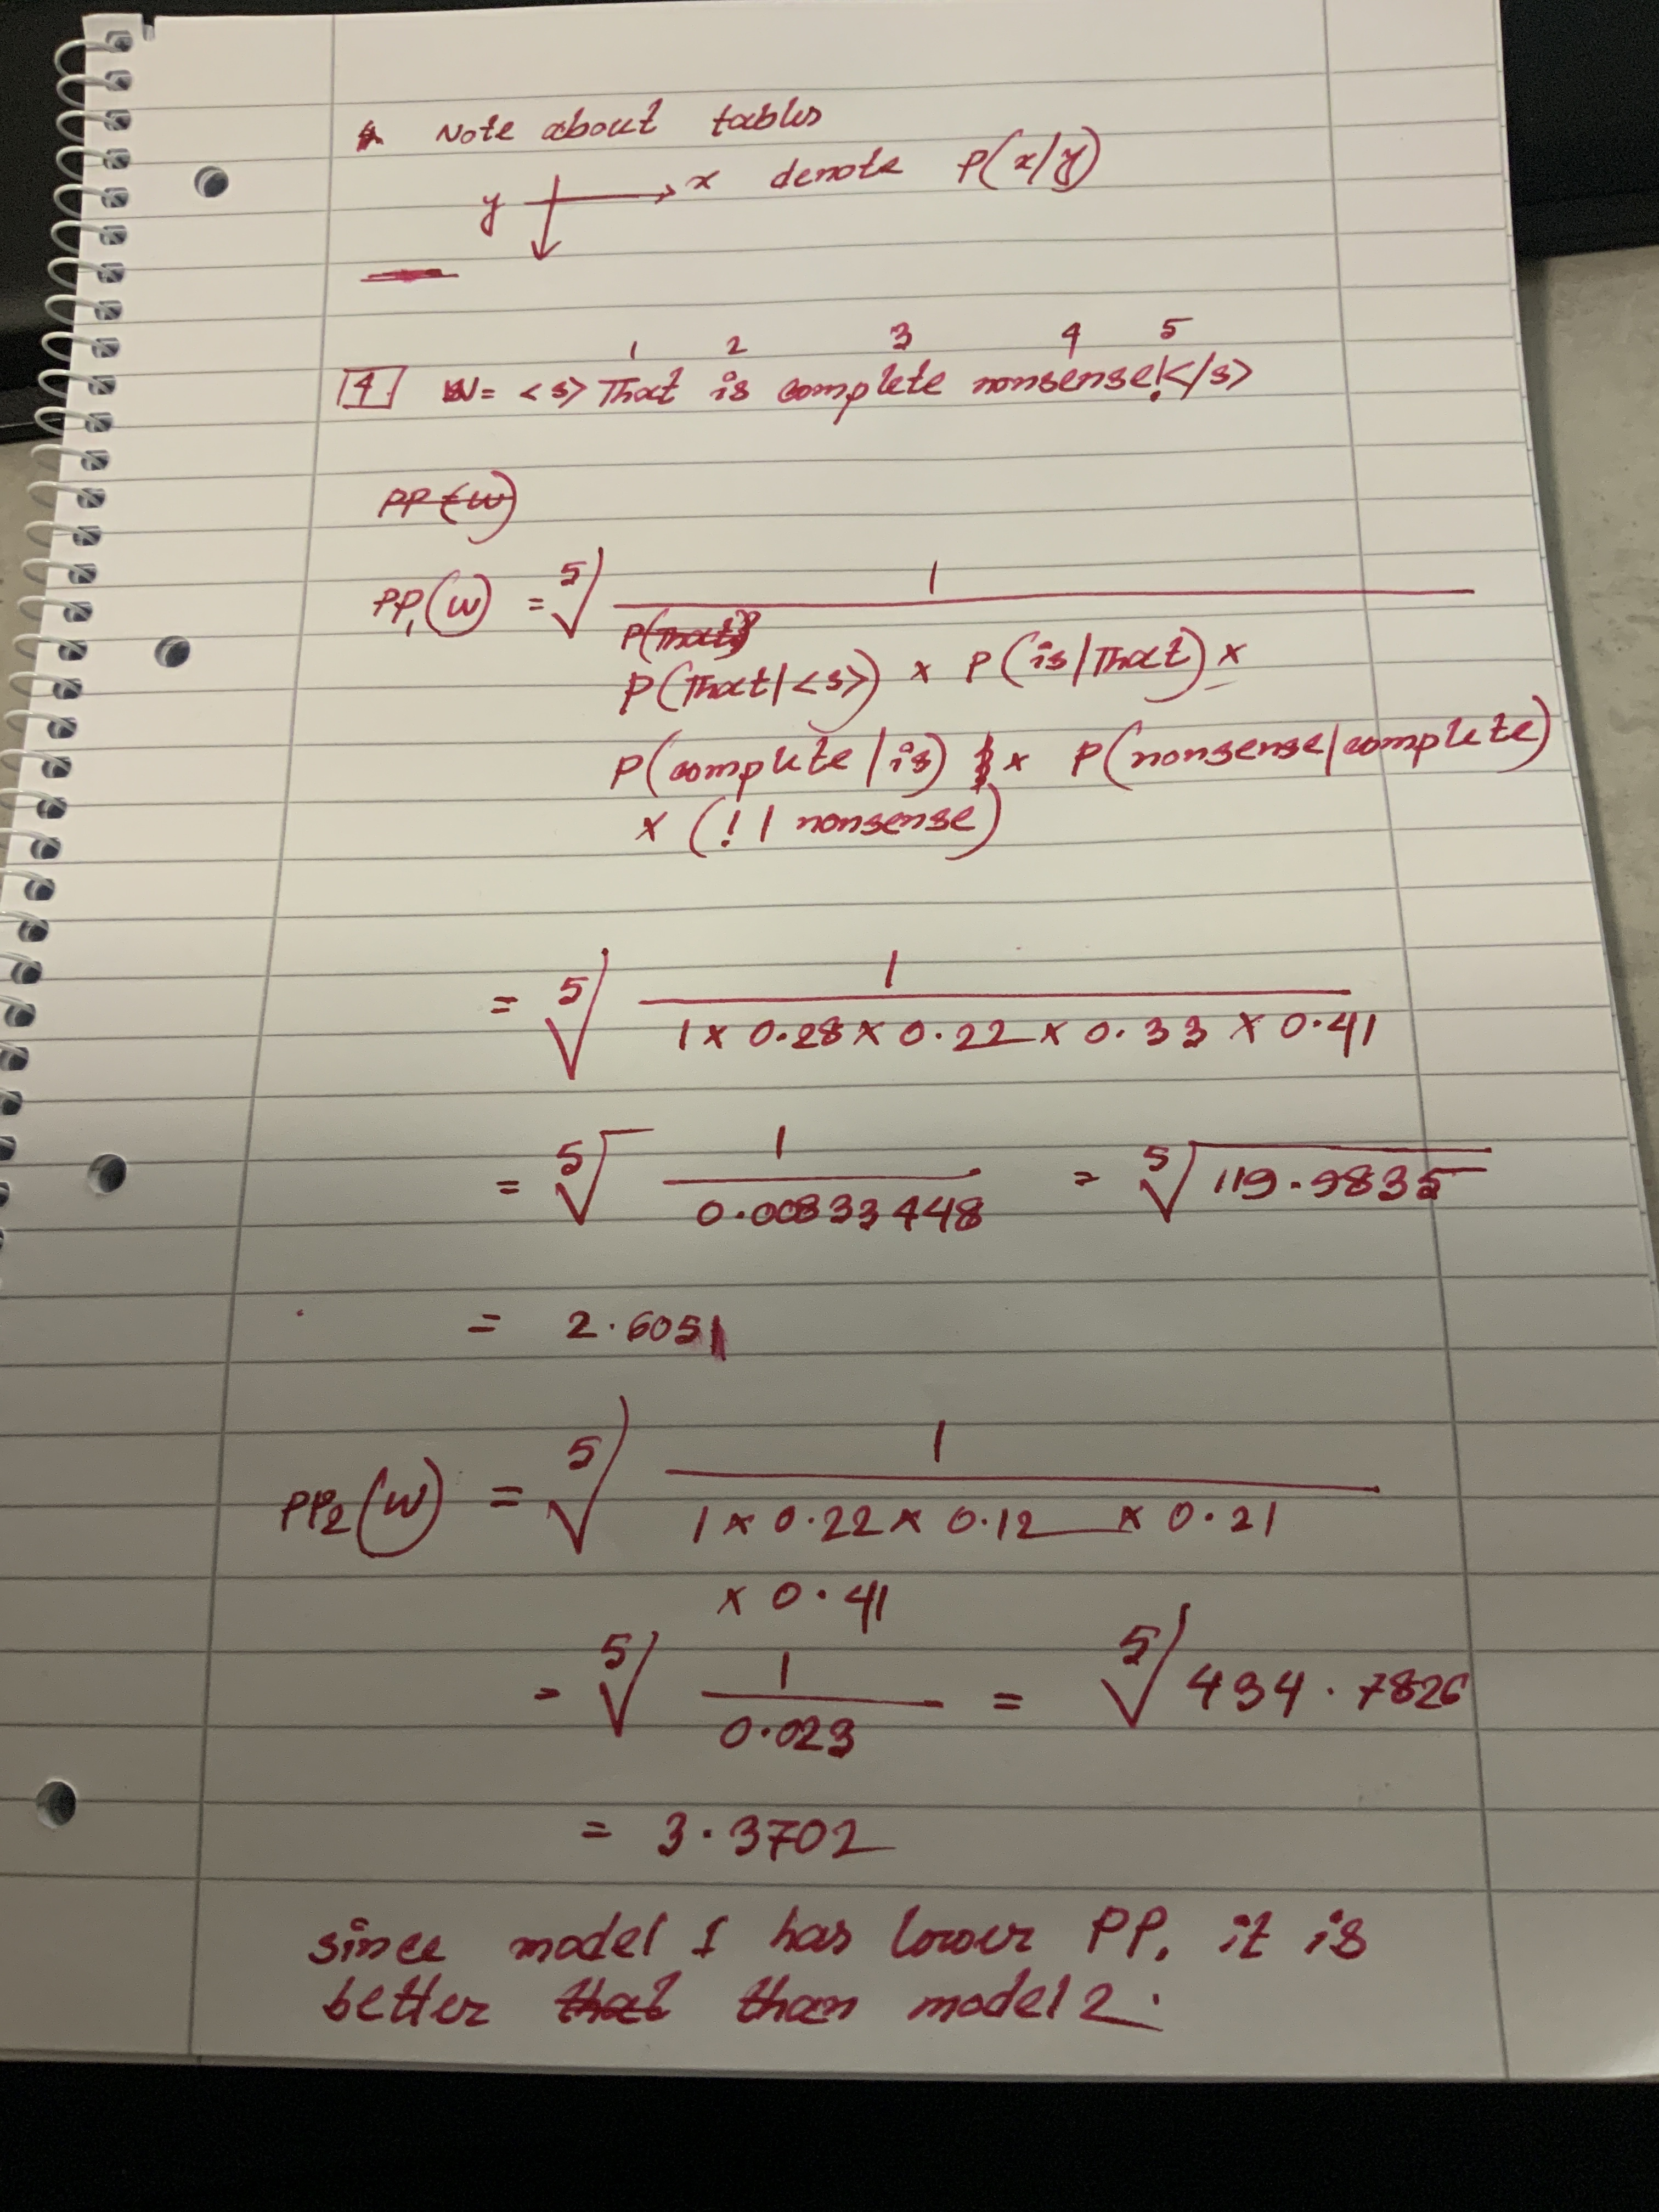 Note about tables
y x denote P(x/y)
1 2 3 4 5
4 W= <s> That is complete nonsense!</s>
PP(W)
PP₁(W) = ⁵√ 1
P(That)
P(That|<s>) × P(is/That) ×
P(complete/is) × P(nonsense/complete)
× (!| nonsense)
= ⁵√ 1
1 × 0.28 × 0.22 × 0.33 × 0.41
= ⁵√ 1 = ⁵√ 119.9835
0.00833448
= 2.6051
PP₂(W) = ⁵√ 1
1 × 0.22 × 0.12 × 0.21
× 0.41
= ⁵√ 1 = ⁵√ 434.7826
0.023
= 3.3702
since model 1 has lower PP, it is
better that than model 2.